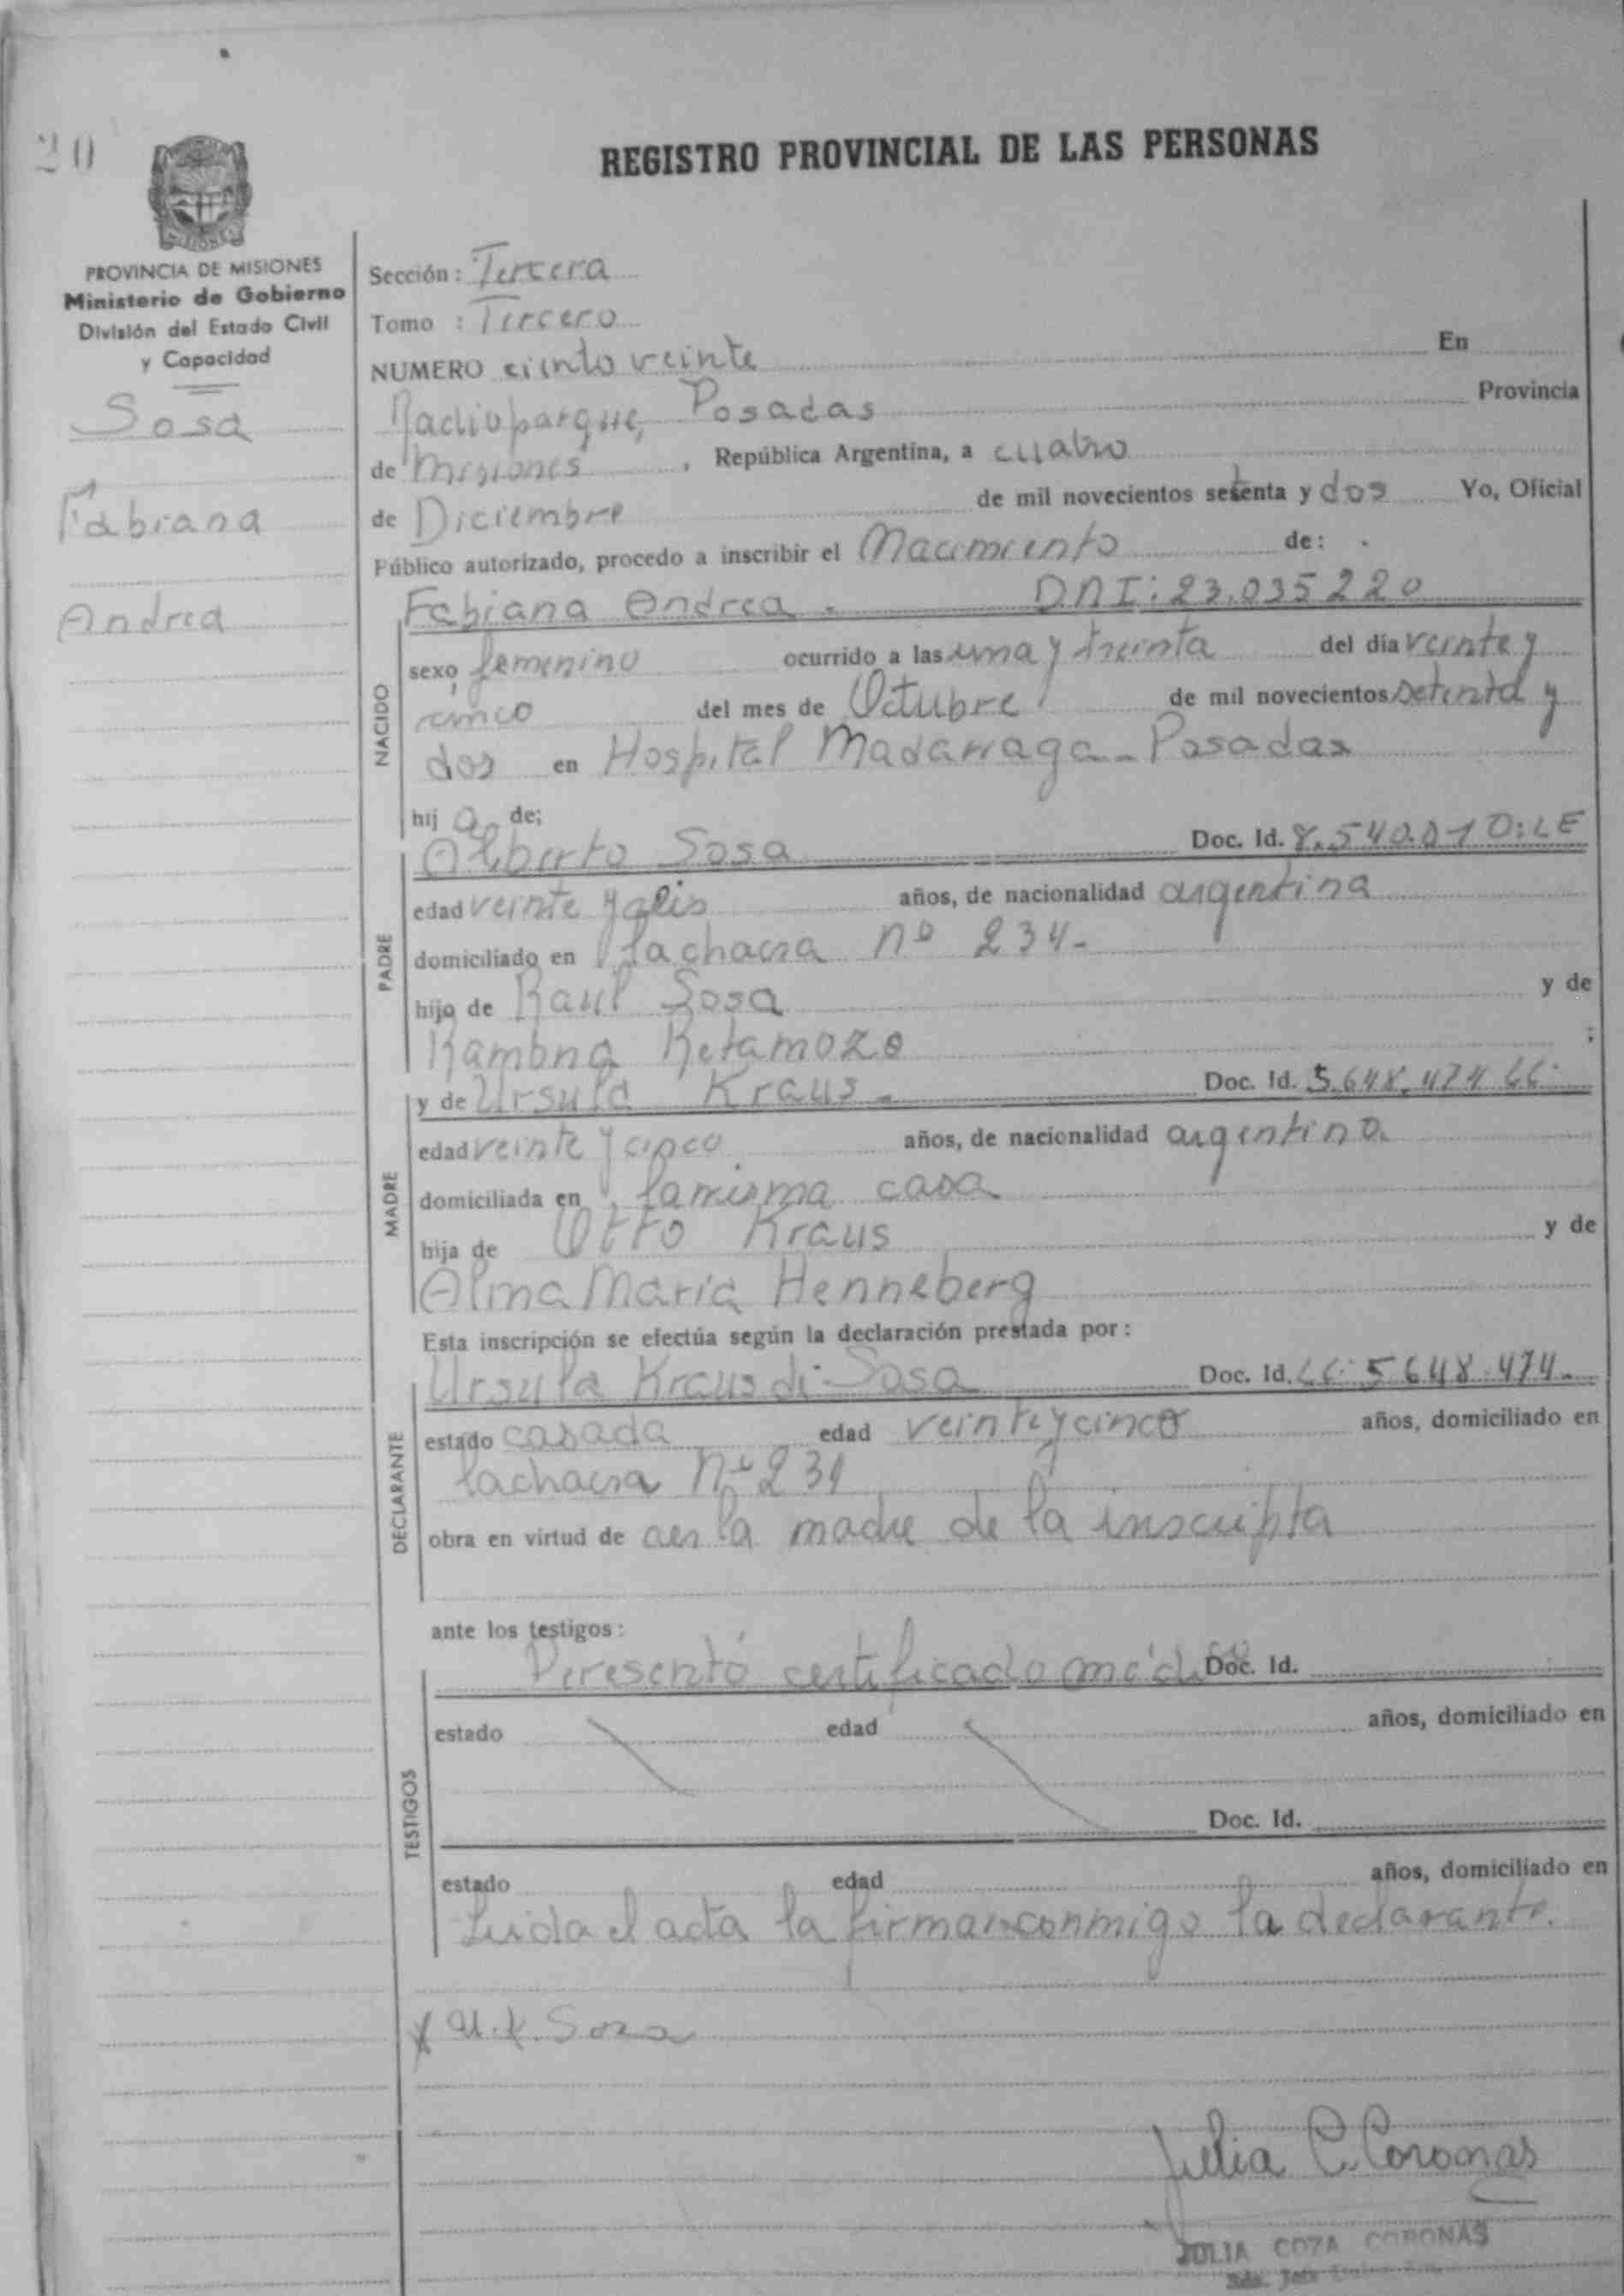 20
REGISTRO PROVINCIAL DE LAS PERSONAS
MISIONES
PROVINCIA DE MISIONES
Ministerio de Gobierno
División del Estado Civil
y Capacidad
Sosa
Fabiana
Andrea
Sección : Tercera
Tomo : Tercero
NUMERO ciento veinte En
Radioparque, Posadas Provincia
de Misiones , República Argentina, a cuatro
de Diciembre de mil novecientos setenta y dos Yo, Oficial
Público autorizado, procedo a inscribir el Nacimiento de:
Fabiana Andrea . DNI: 23.035220
NACIDO
sexo femenino ocurrido a las una y treinta del día veinte y
cinco del mes de Octubre de mil novecientos setenta y
dos en Hospital Madarriaga - Posadas
hij a de;
Alberto Sosa Doc. Id. 8.540.010:LE
PADRE
edad veinte y seis años, de nacionalidad argentina
domiciliado en la chacra nº 234-
hijo de Raul Sosa y de
Ramona Retamozo ;
y de Ursula Kraus - Doc. Id. 5.648.474 LC:
MADRE
edad veinte y cinco años, de nacionalidad argentina
domiciliada en la misma casa
hija de Otto Kraus y de
Alma Maria Henneberg
Esta inscripción se efectúa según la declaración prestada por :
Ursula Kraus de Sosa Doc. Id. LC: 5648.474-
DECLARANTE
estado casada edad veinte y cinco años, domiciliado en
la chacra Nº 234
obra en virtud de ser la madre de la inscripta
ante los testigos :
Presentó certificado médico Doc. Id.
TESTIGOS
estado edad años, domiciliado en
Doc. Id.
estado edad años, domiciliado en
Leida el acta la firma conmigo la declarante.
x U. K. Sosa
Julia C. Coronas
JULIA COZA CORONAS